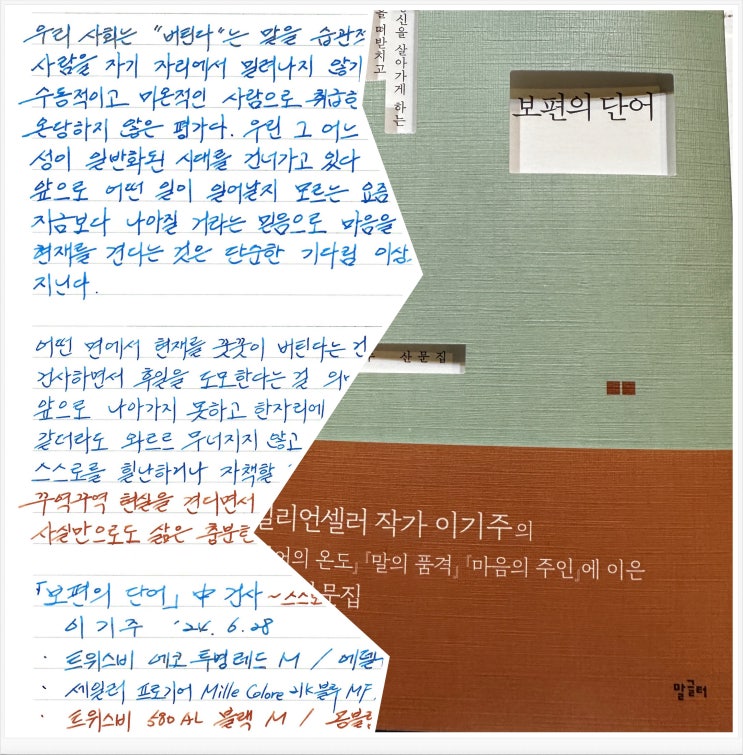 우리 사회는 "버틴다"는 말을 습관적
사람을 자기 자리에서 밀려나지 않기
수동적이고 미온적인 사람으로 취급한
온당하지 않은 평가다. 우린 그 어느
성이 일반화된 시대를 건너가고 있다
앞으로 어떤 일이 일어날지 모르는 요즘
지금보다 나아질 거라는 믿음으로 마음을
현재를 견디는 것은 단순한 기다림 이상
지닌다.
어떤 면에서 현재를 꿋꿋이 버틴다는 건
건사하면서 후일을 도모한다는 걸 의
앞으로 나아가지 못하고 한자리에
같더라도 와르르 무너지지 않고
스스로를 힐난하거나 자책할
꾸역꾸역 현실을 견디면서
사실만으로도 삶은 충분한
「보편의 단어」 中 건사 ~스스로
이기주 '24. 6. 28
· 트위스비 에코 투명레드 M / 에델
· 세일러 프로기어 Mille Colore 블루 MF.
· 트위스비 580AL 블랙 M / 몽블
신을 살아가게 하는
을 떠받치고
보편의 단어
산문집
밀리언셀러 작가 이기주의
어의 온도』『말의 품격』『마음의 주인』에 이은
문집
말글터